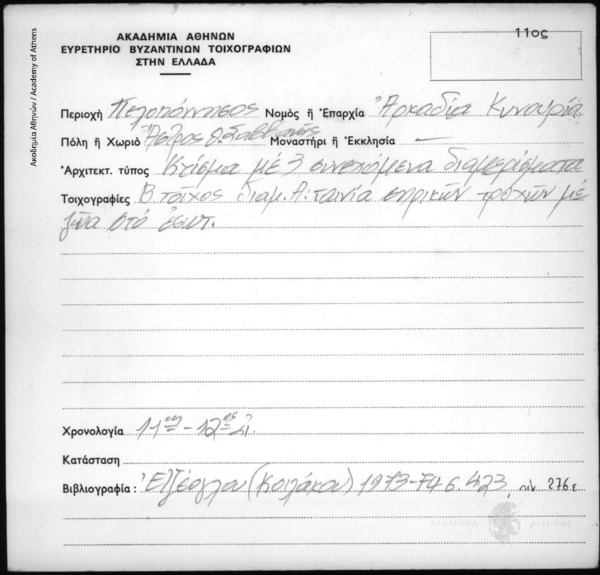 11ος
ΑΚΑΔΗΜΙΑ ΑΘΗΝΩΝ
ΕΥΡΕΤΗΡΙΟ ΒΥΖΑΝΤΙΝΩΝ ΤΟΙΧΟΓΡΑΦΙΩΝ
ΣΤΗΝ ΕΛΛΑΔΑ
Ακαδημία Αθηνών / Academy of Athens
Περιοχή Πελοπόννησος Νομός ἤ Ἐπαρχία Ἀρκαδία Κυνουρία
Πόλη ἤ Χωριό Ἄστρος Μοναστήρι ἤ Ἐκκλησία —
Ἀρχιτεκτ. τύπος Κτίσμα μέ 3 συνεχόμενα διαμερίσματα
Τοιχογραφίες Β. τοῖχος διαμ. Α. ταινία σηρικῶν τροχῶν με
ζῶα στό ἐσωτ.
Χρονολογία 11ος - 12ος αἰ.
Κατάσταση
Βιβλιογραφία : 1973-74 σ. 423, πιν. 276ε